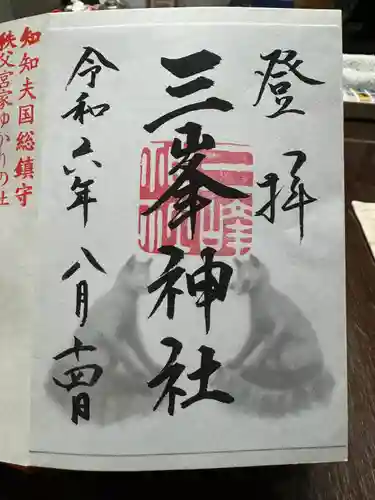 登拝
三峯神社
令和六年 八月十四日
知知夫国総鎮守
秩父宮家ゆかりの社